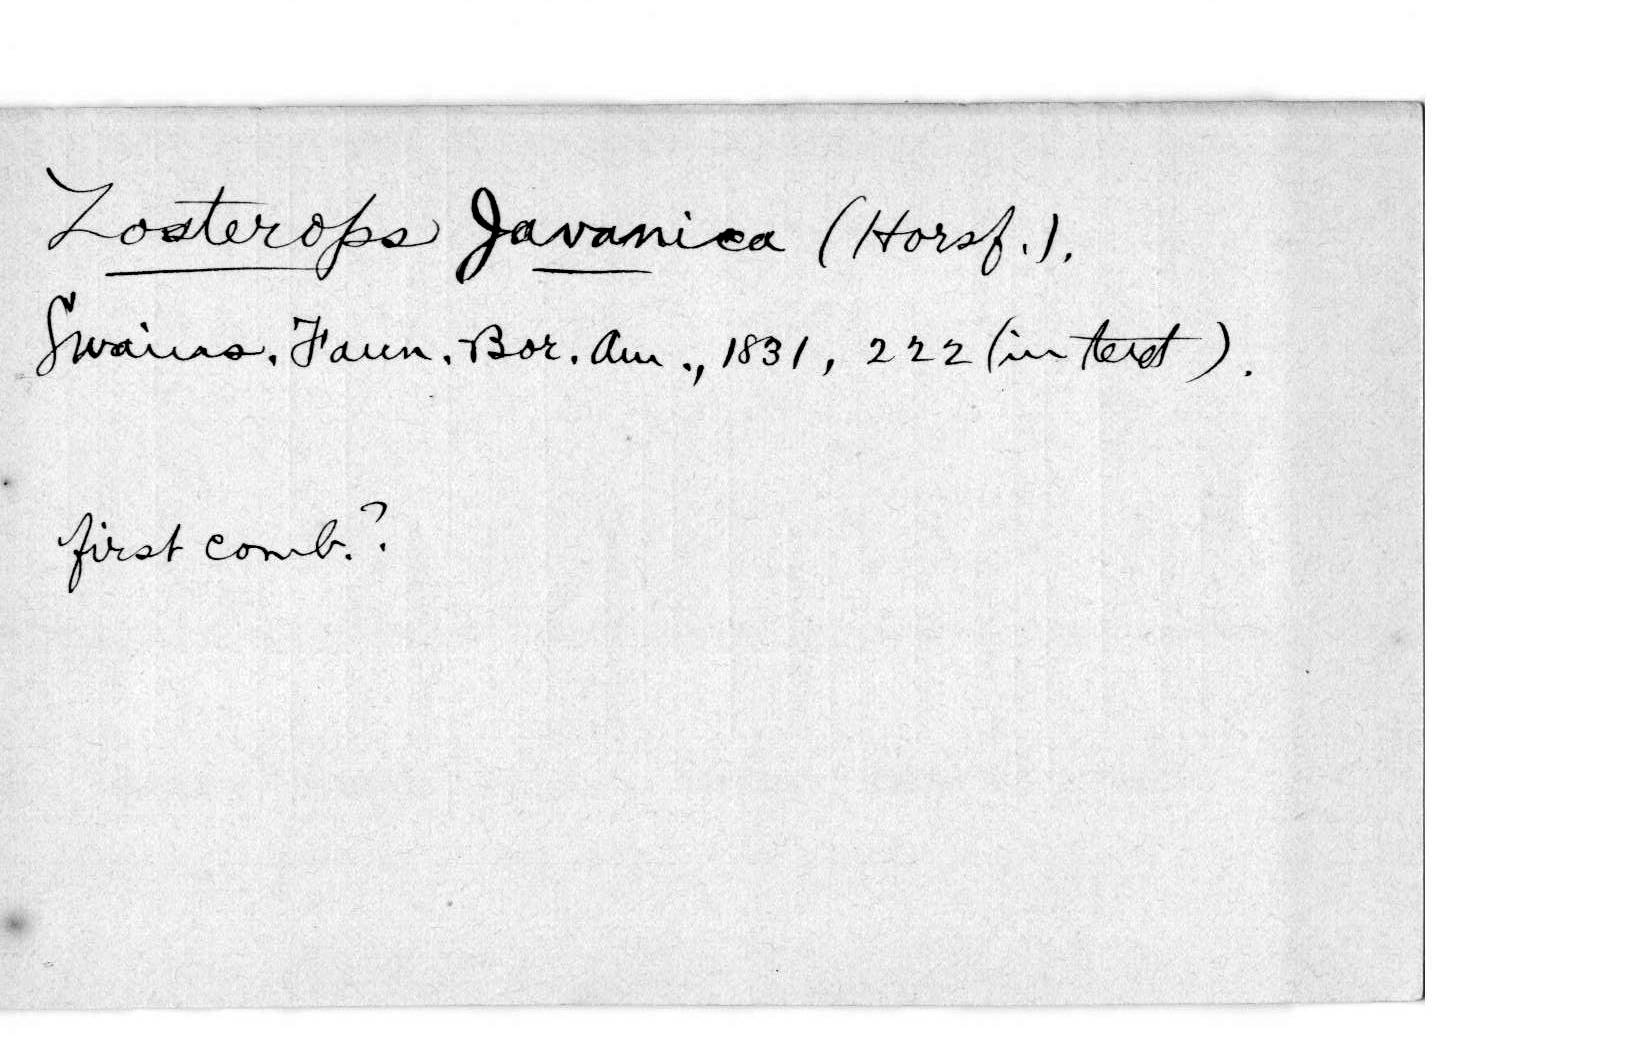 Zosterops Javanica (Horsf.).
Swains. Faun. Bor. Am., 1831, 222 (in text).
first comb.?